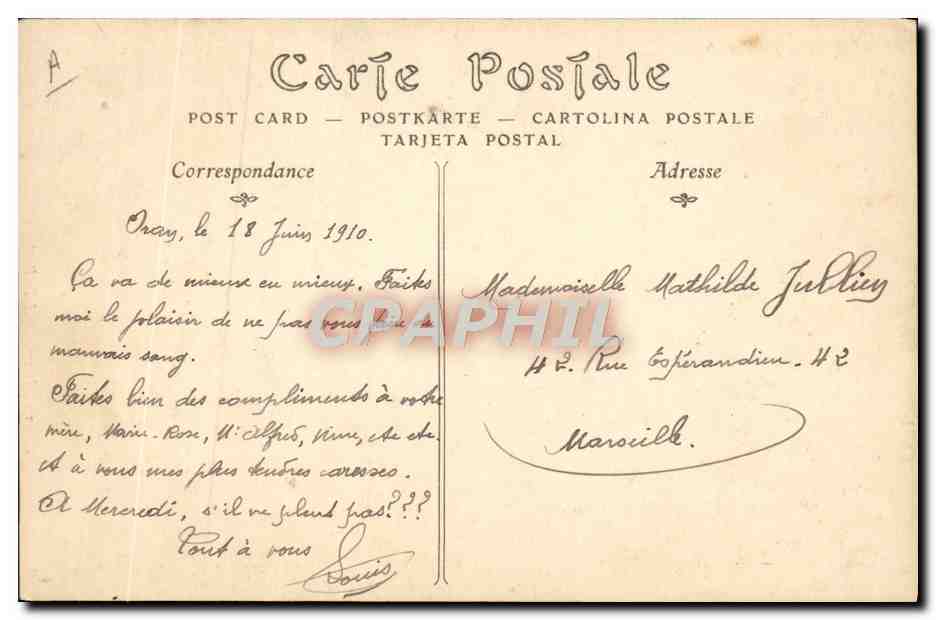 A
Carte Postale
POST CARD — POSTKARTE — CARTOLINA POSTALE
TARJETA POSTAL
Correspondance
Oran, le 18 Juin 1910.
Ça va de mieux en mieux. Faites
moi le plaisir de ne pas vous faire de
mauvais sang.
Faites bien des compliments à votre
mère, Marie-Rose, Mr Alfred, etc etc.
et à vous mes plus tendres caresses.
A Mercredi, s'il ne pleut pas???
Tout à vous Louis
Adresse
Mademoiselle Mathilde Jullien
42. Rue Espérandieu. 42
Marseille.
CPAPHIL